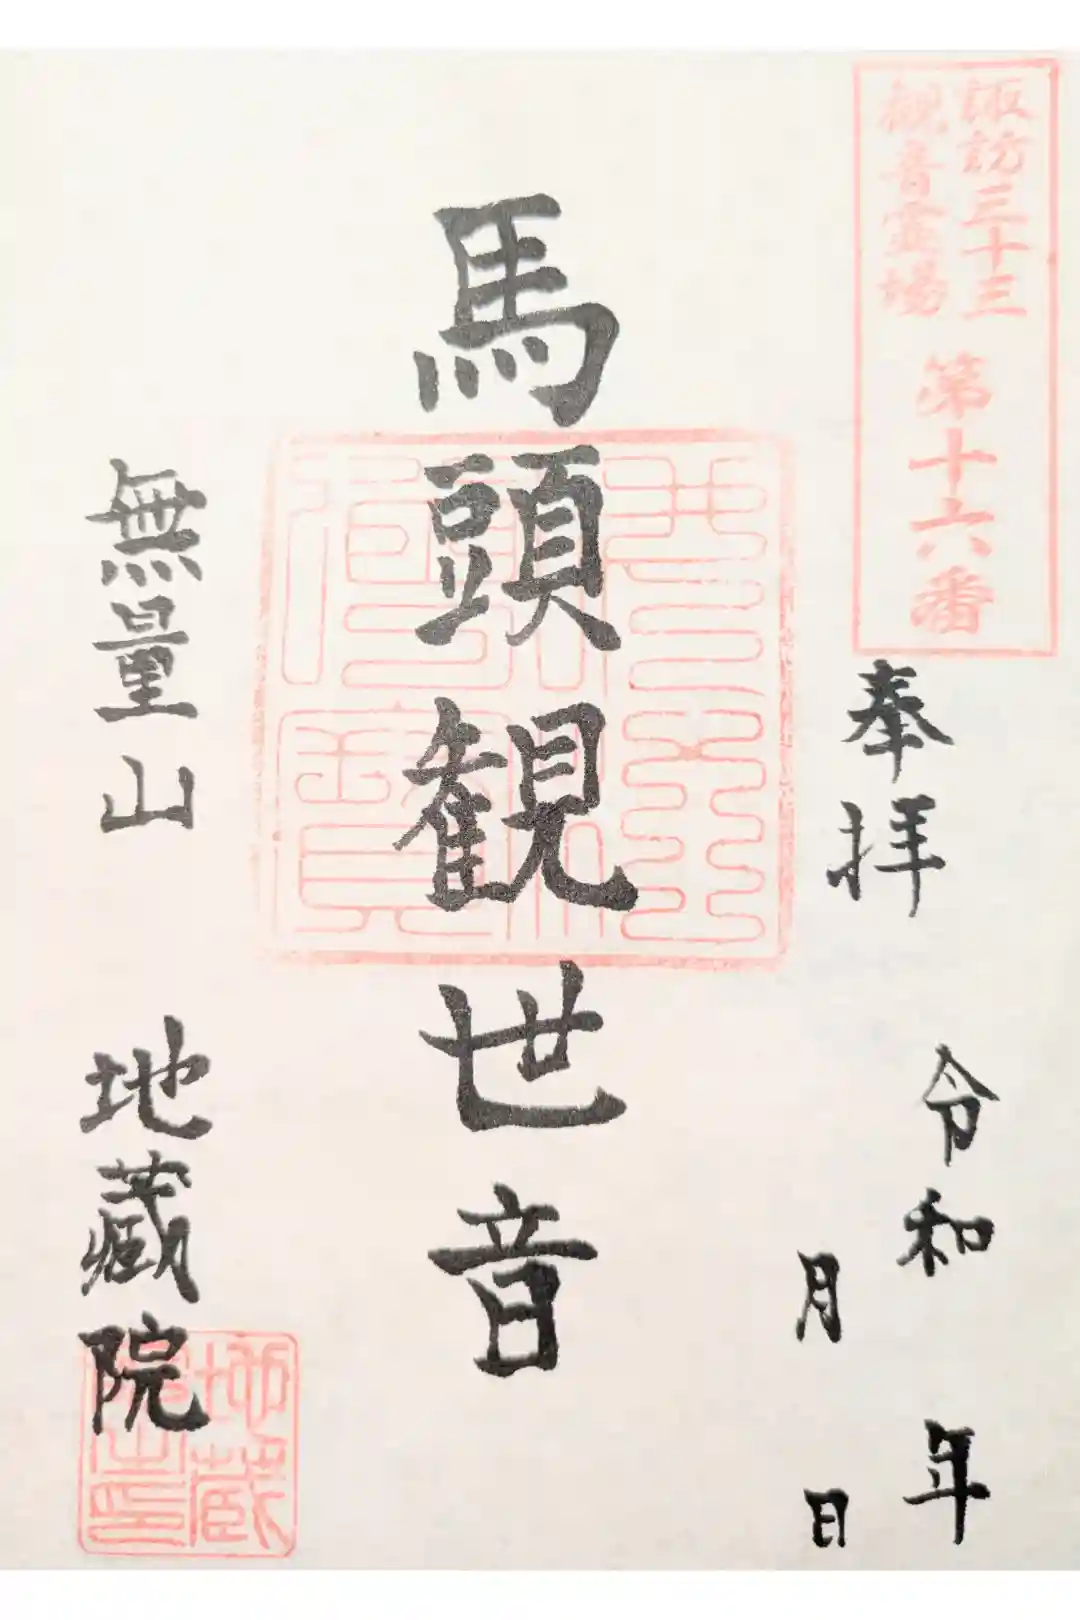 諏訪三十三
観音霊場
第十六番
奉拝
令和 年
月 日
馬頭観世音
無量山 地蔵院
地蔵
院之印